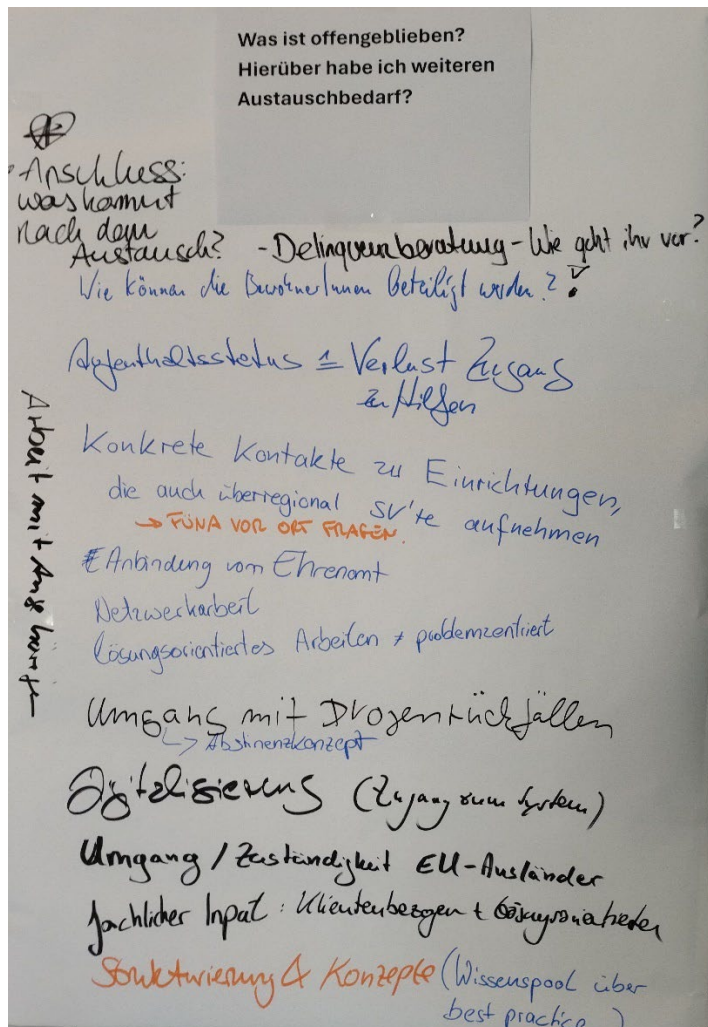 Was ist offengeblieben?
Hierüber habe ich weiteren
Austauschbedarf?
Anschluss:
was kommt
nach dem
Austausch?
- Delinquenzberatung - Wie geht ihr vor?
Wie können die BewohnerInnen beteiligt werden?
Aufenthaltsstatus ≙ Verlust Zugang
zu Hilfen
Konkrete Kontakte zu Einrichtungen,
die auch überregional SV'te aufnehmen
→ FÜNA VOR ORT FRAGEN.
Anbindung vom Ehrenamt
Netzwerkarbeit
lösungsorientiertes Arbeiten ≠ problemzentriert
Arbeit mit
Umgang mit Drogenrückfällen
↳ Abstinenzkonzept
Digitalisierung (Zugang zum System)
Umgang / Zuständigkeit EU-Ausländer
fachlicher Input : Klientenbezogen +
Strukturierung & Konzepte (Wissenspool über
best practice)